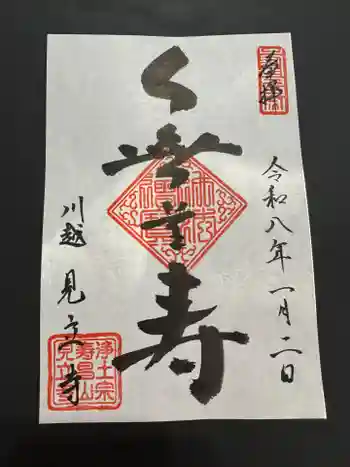 奉拝
令和八年一月二日
無量寿
川越 見立寺
浄土宗
寿昌山
見立寺